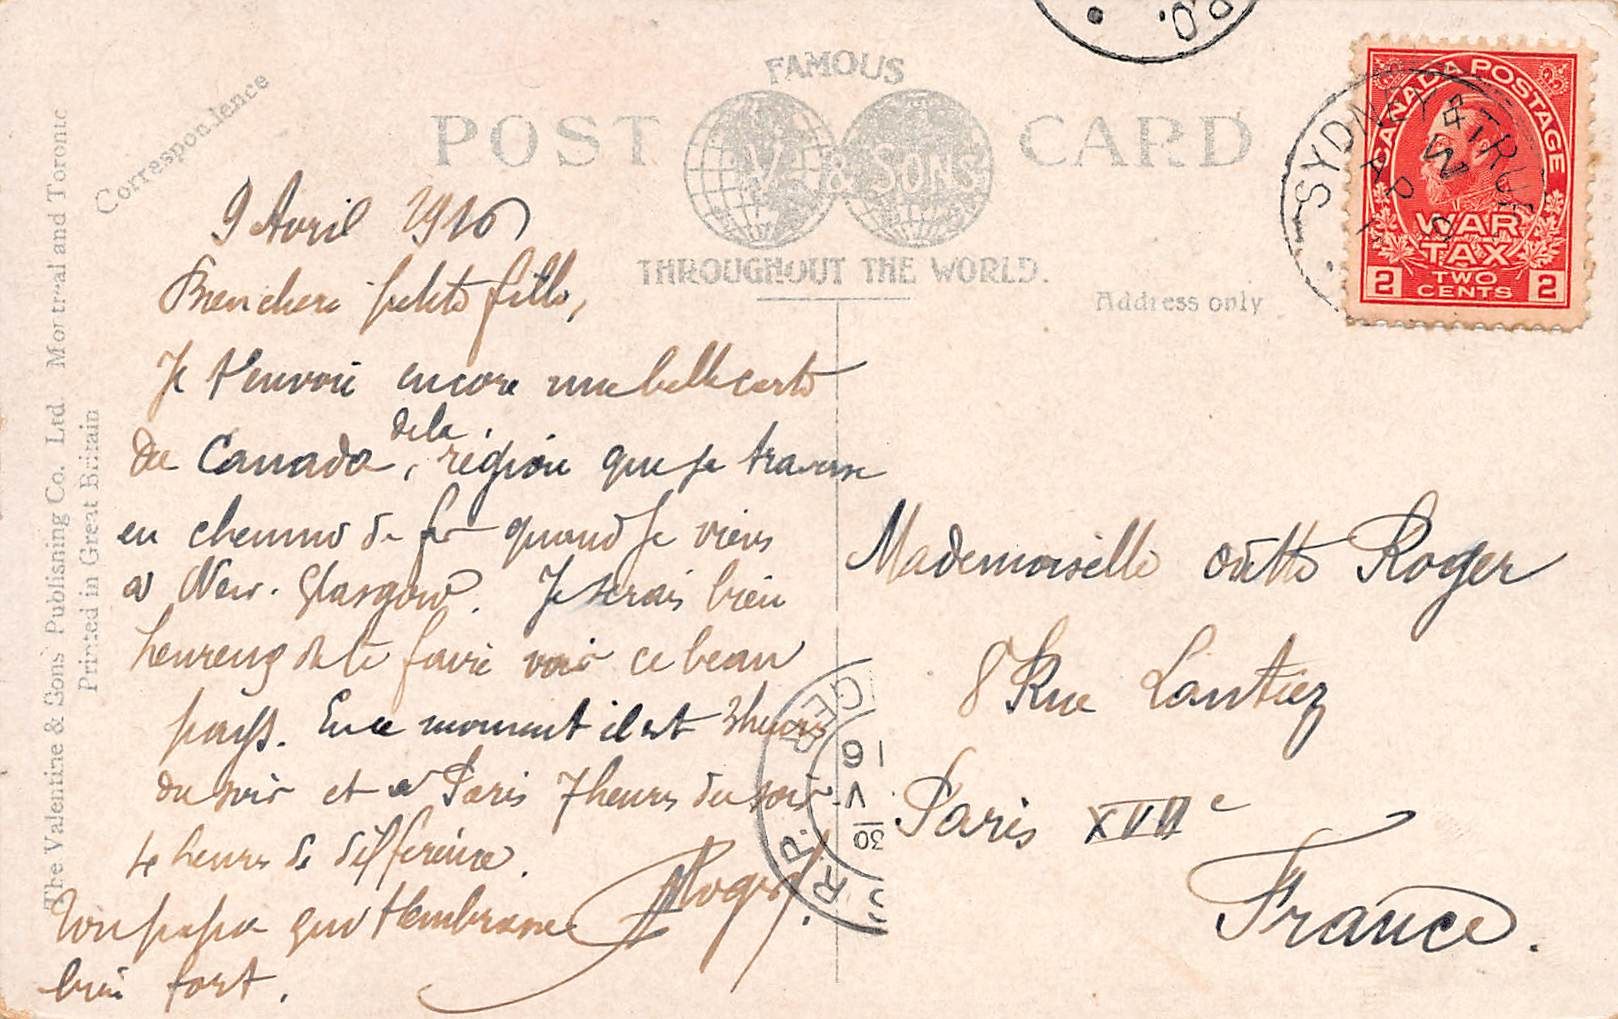 FAMOUS
POST CARD
V. & SONS
THROUGHOUT THE WORLD.
Correspondence
Address only
The Valentine & Sons' Publishing Co. Ltd Montreal and Toronto
Printed in Great Britain
CANADA POSTAGE
WAR
TAX
TWO
CENTS
2 2
SYDNEY & TRU
AP
P.O.
R.P.
30 V 16
9 Avril 1916
Bien chère petite fille,
Je t'envoie encore une belle carte
du Canada, de la région que je traverse
en chemin de fer quand je viens
à New-Glasgow. Je serais bien
heureux de te faire voir ce beau
pays. En ce moment il est 3 heures
du soir et à Paris 7 heures du soir
4 heures de différence.
Ton papa qui t'embrasse
bien fort.
Roger
Mademoiselle Roger
8 Rue Lantiez
Paris XVIIe
France.